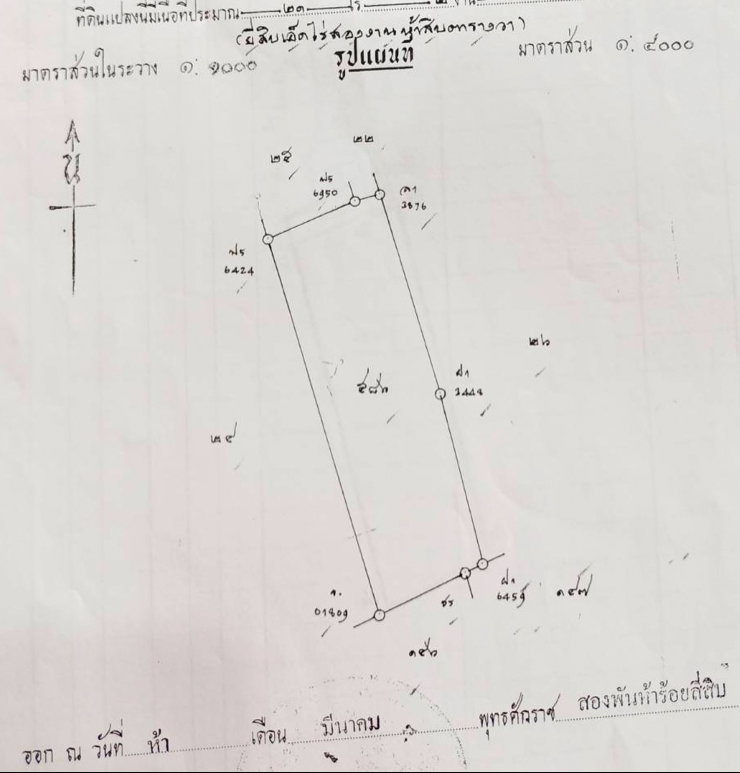 ที่ดินแปลงนี้มีเนื้อที่ประมาณ ๒๑ ไร่ ๒ งาน
(ยี่สิบเอ็ดไร่สองงานห้าสิบตารางวา)
มาตราส่วนในระวาง ๑: ๑๐๐๐
รูปแผนที่
มาตราส่วน ๑: ๔๐๐๐
น
๒๕
๒๒
6950
3876
6424
๒๖
3448
๒๔
01809
6459
๑๔๗
๑๔๖
ออก ณ วันที่ ห้า เดือน มีนาคม พุทธศักราช สองพันห้าร้อยสี่สิบ